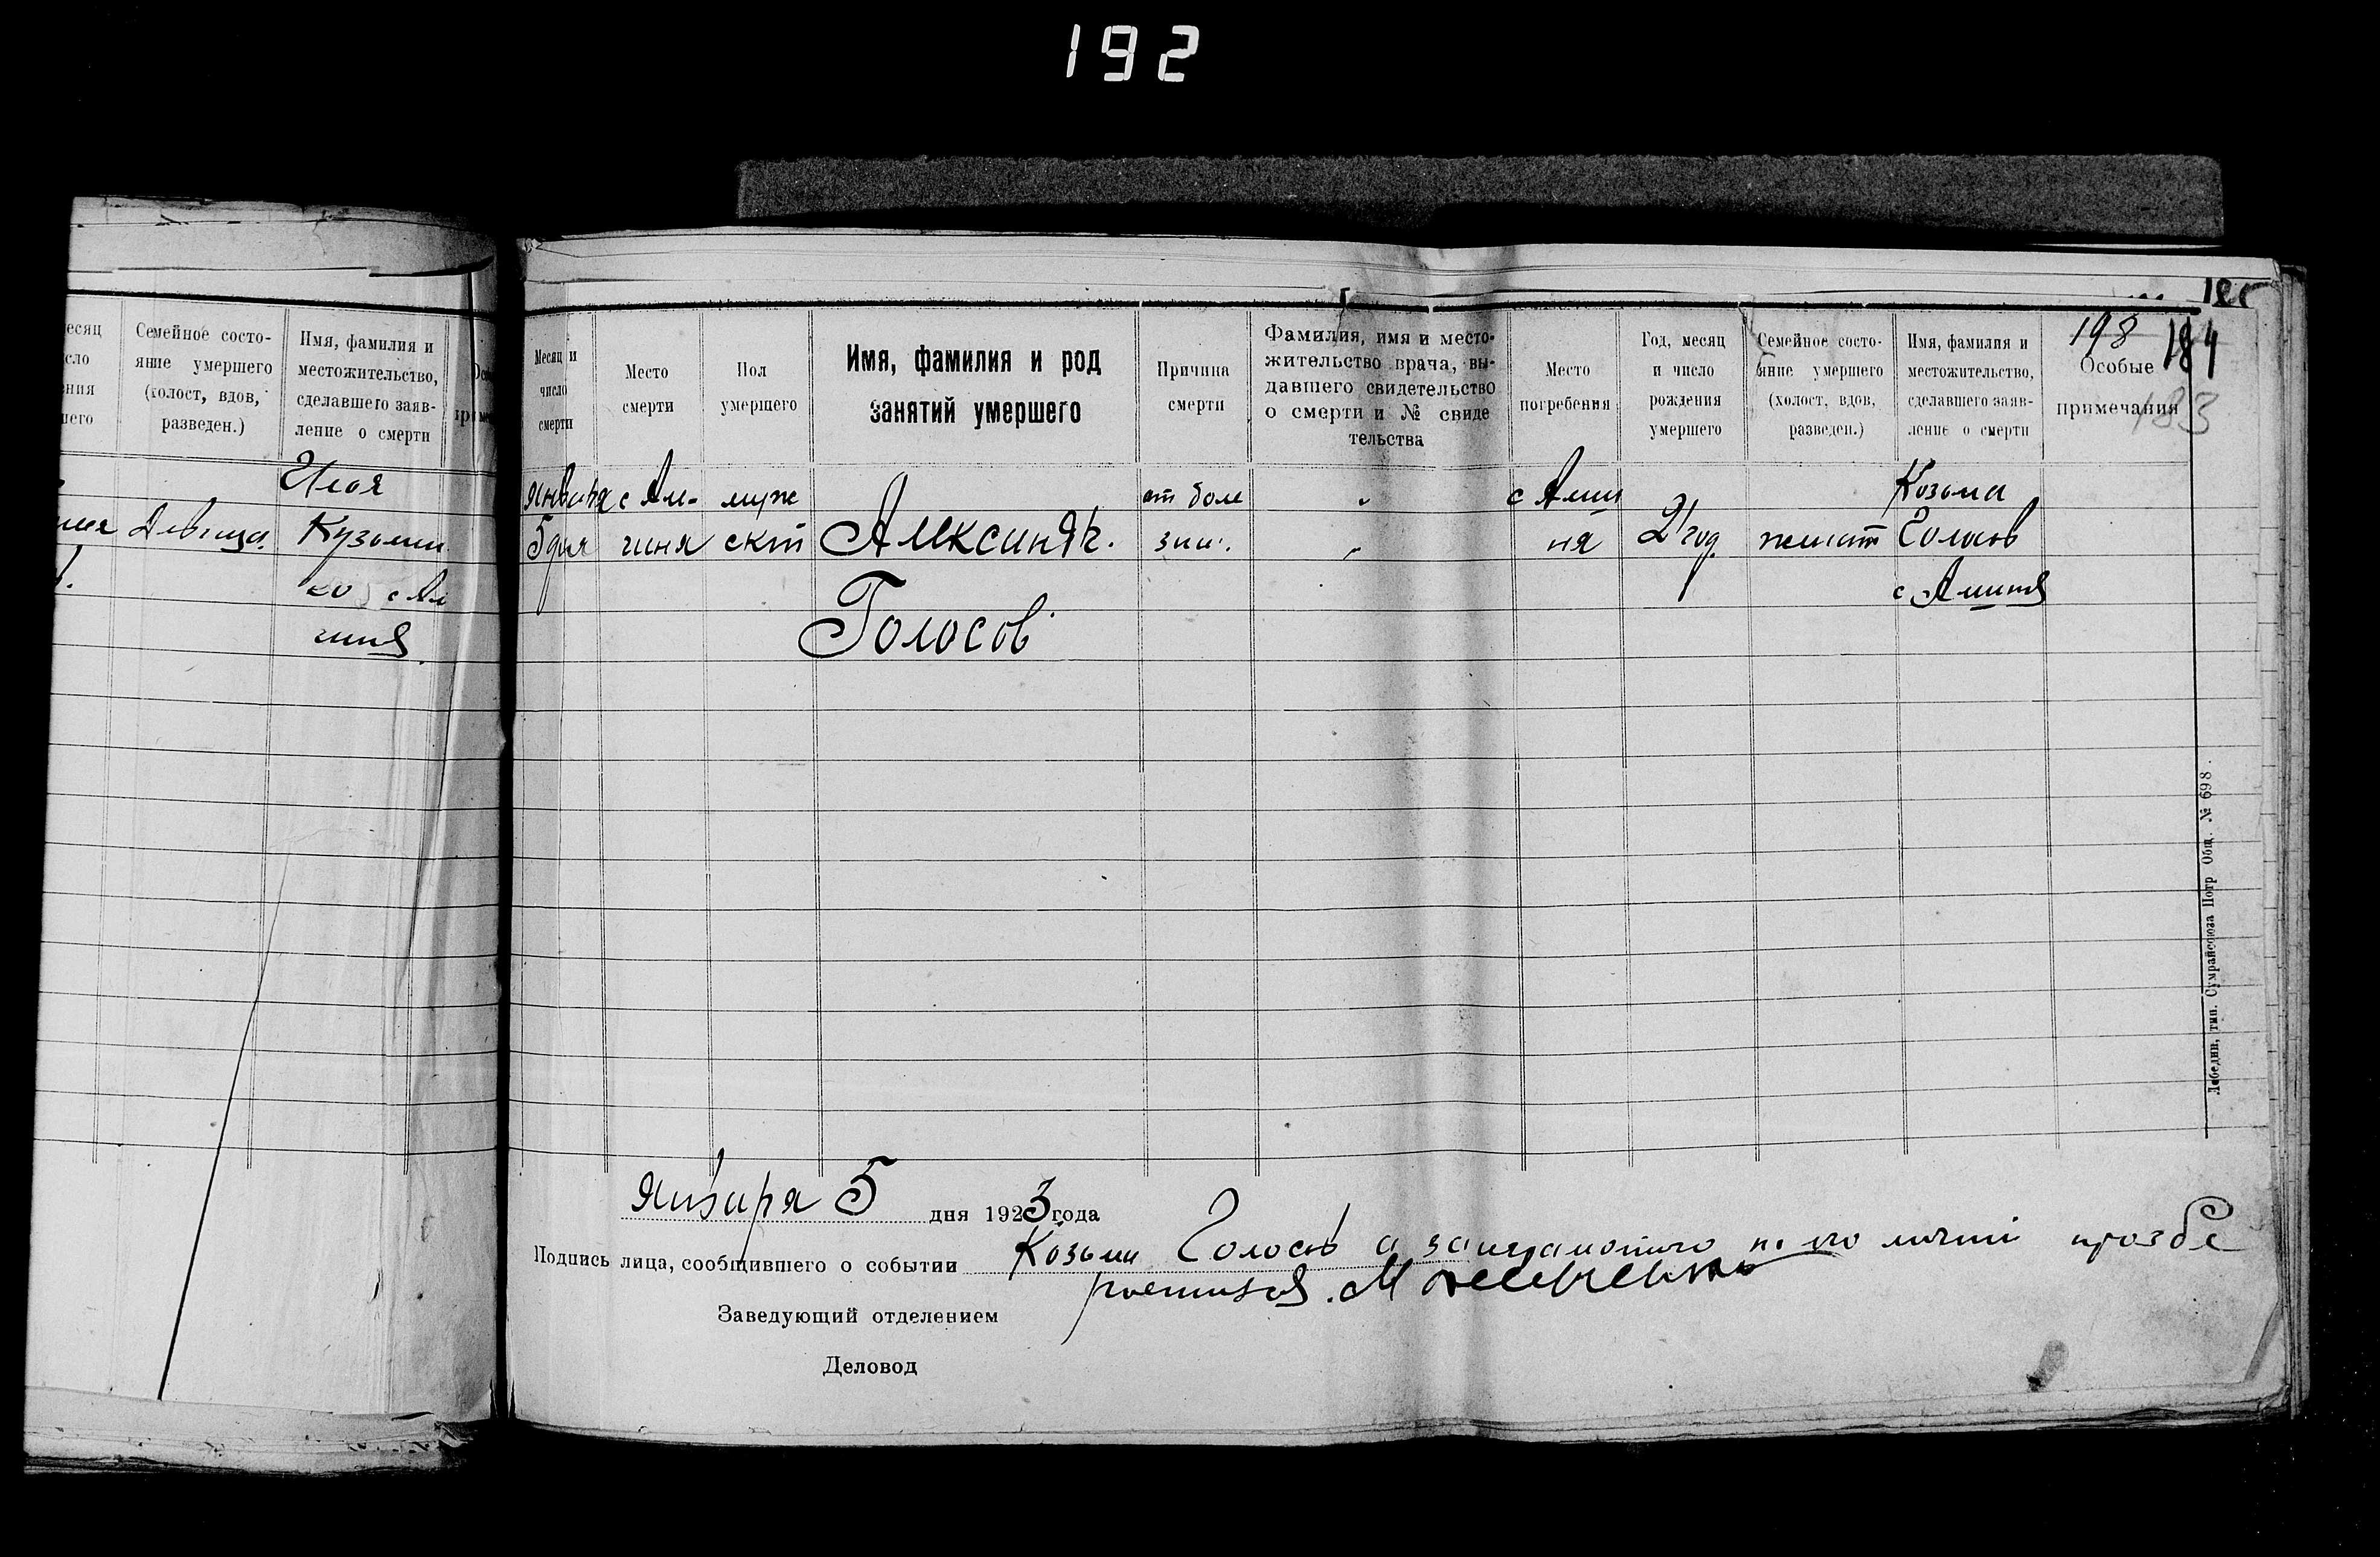 192
есяц
сло
ения
шего
Семейное состо-
яние умершего
(холост, вдов,
разведен.)
Имя, фамилия и
местожительство,
сделавшего заяв-
ление о смерти
Илья
Девица. Кузьмен
ко с Ал
чиня
198 184
183
Месяц и
число
смерти
Место
смерти
Пол
умершего
Имя, фамилия и род
занятий умершего
Причина
смерти
Фамилия, имя и место-
жительство врача, вы-
давшего свидетельство
о смерти и № свиде
тельства
Место
погребения
Год, месяц
и число
рождения
умершего
Семейное состо-
яние умершего
(холост, вдов,
разведен.)
Имя, фамилия и
местожительство,
сделавшего заяв-
ление о смерти
Особые
примечания
Января с Ал- муж от боле " с Алчи Козьма
5 дня чиня скт зни. " ня 2 год. женат Голосов
с Алчиня
Голосов
Января 5 дня 1923 года
Подпись лица, сообщившего о событии Козьма Голосов а занеграмотного по его личні прозбе
Заведующий отделением
Деловод
Лебедин, тип. Сумрайсоюза Потр Общ. № 698.